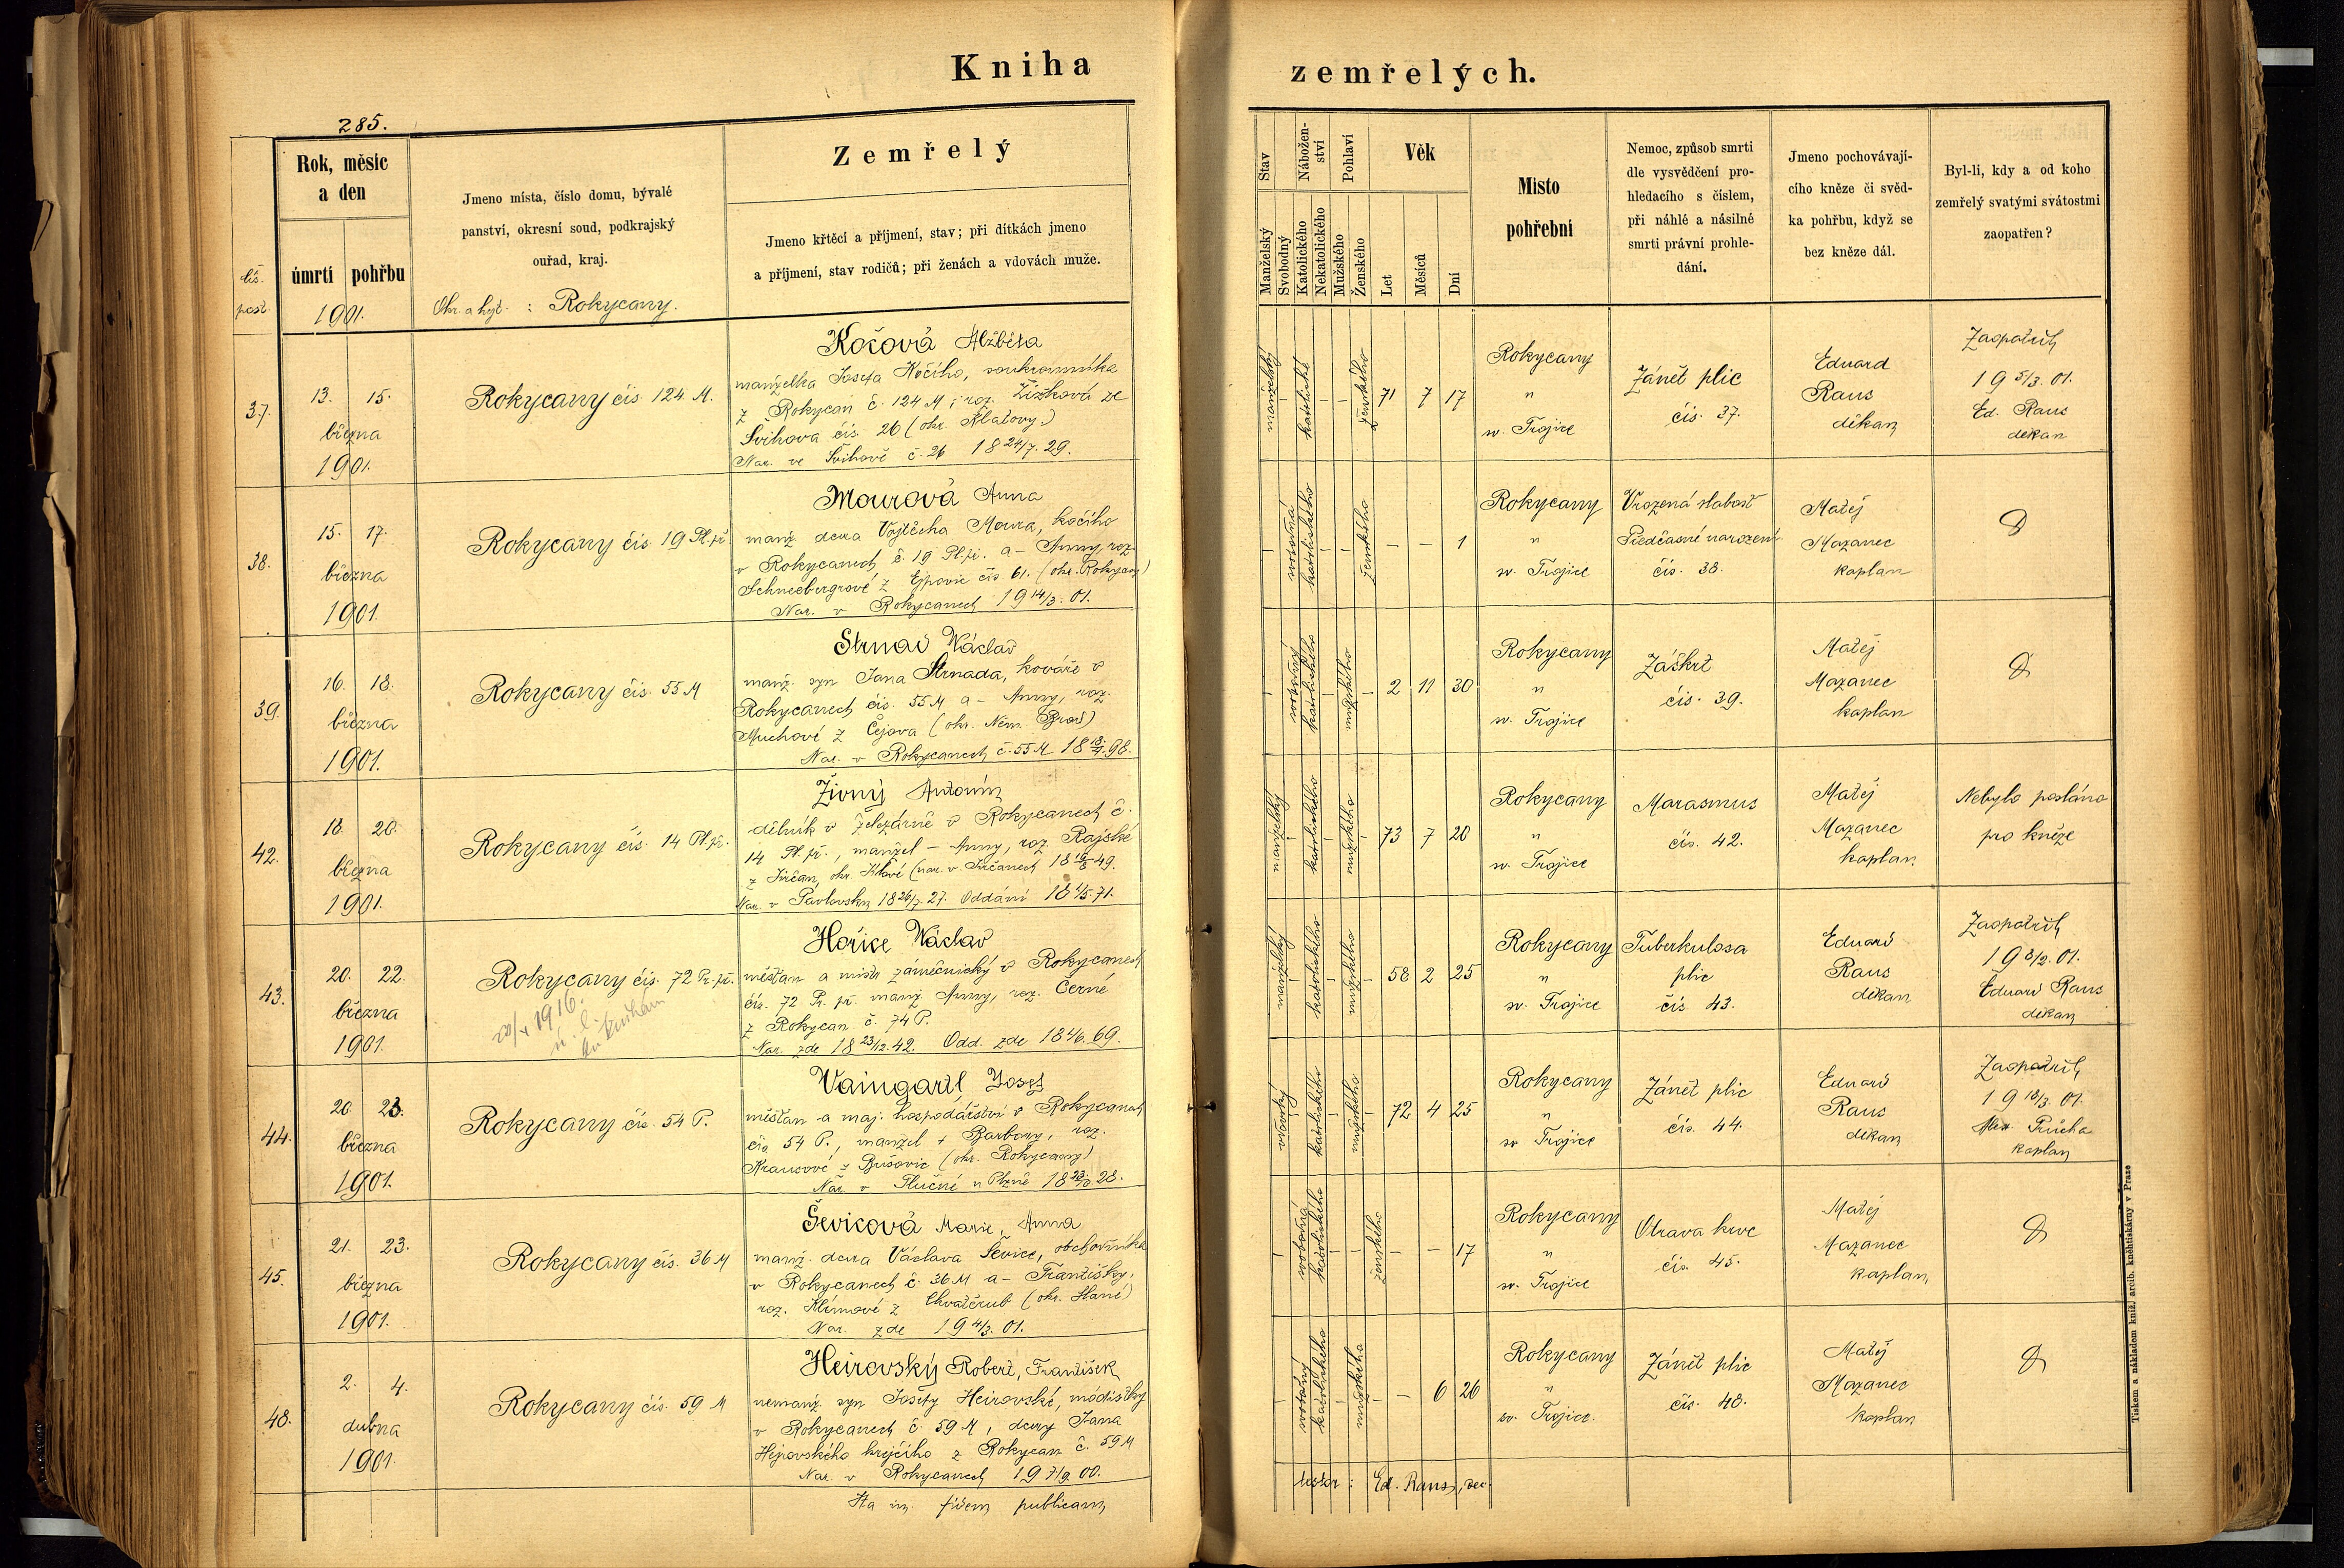 Kniha
zemřelých.
285.
Rok, měsíc
a den
úmrtí
pohřbu
1901.
čís.
post.
Jmeno místa, číslo domu, bývalé
panství, okresní soud, podkrajský
ouřad, kraj.
Okr. a hejt. : Rokycany.
Zemřelý
Jmeno křtěcí a příjmení, stav; při dítkách jmeno
a příjmení, stav rodičů; při ženách a vdovách muže.
Stav
Manželský
Svobodný
Nábožen-
ství
Katolického
Nekatolického
Pohlaví
Mužského
Ženského
Věk
Let
Měsíců
Dní
Místo
pohřební
Nemoc, způsob smrti
dle vysvědčení pro-
hledacího s číslem,
při náhlé a násilné
smrti právní prohle-
dání.
Jmeno pochovávají-
cího kněze či svěd-
ka pohřbu, když se
bez kněze dál.
Byl-li, kdy a od koho
zemřelý svatými svátostmi
zaopatřen?
37.
13. 15.
března
1901.
Rokycany čís. 124 M.
Kočová Alžběta
manželka Josefa Kočího, soukromníka
z Rokycan č. 124 M, roz. Žižková ze
Švihova čís. 26 (okr. Klatovy)
Nar. ve Švihově č. 26 18 24/7. 29.
manželský
katolické
ženského
71 7 17
Rokycany
"
sv. Trojice
Zánět plic
čís. 37.
Eduard
Raus
děkan
Zaopatřil
19 5/3. 01.
Ed. Raus
děkan
38.
15. 17.
března
1901.
Rokycany čís. 19 Pl. př.
Mourová Anna
manž. dcera Vojtěcha Moura, kočího
v Rokycanech č. 19 Pl. př. a - Anny, roz.
Schneebergrové z Ejpovic čís. 61. (okr. Rokycany)
Nar. v Rokycanech 19 14/3. 01.
svobodná
katolického
ženského
- - 1
Rokycany
"
sv. Trojice
Vrozená slabost
Předčasné narození
čís. 38.
Matěj
Mazanec
kaplan
39.
16. 18.
března
1901.
Rokycany čís. 55 M
Strnad Václav
manž. syn Jana Strnada, kováře v
Rokycanech čís. 55 M a - Anny, roz.
Muchové z Čejova (okr. Něm. Brod)
Nar. v Rokycanech č. 55 M 18 18/4. 98.
svobodný
katolického
mužského
2 11 30
Rokycany
"
sv. Trojice
Záškrt
čís. 39.
Matěj
Mazanec
kaplan
42.
18. 20.
března
1901.
Rokycany čís. 14 Pl. př.
Živný Antonín
dělník v železárně v Rokycanech č.
14 Pl. př., manžel - Anny, roz. Rajské
z Jirčan, okr. Jílové (nar. v Jirčanech 49.
Nar. v Pavlovsku 18 26/7. 27. Oddáni 71.
manželský
katolického
mužského
73 7 20
Rokycany
"
sv. Trojice
Marasmus
čís. 42.
Matěj
Mazanec
kaplan
Nebylo posláno
pro kněze
43.
20. 22.
března
1901.
Rokycany čís. 72 Pr. př.
1916
Hořice Václav
měšťan a mistr zámečnický v Rokycanech
čís. 72 Pr. př. manž. Anny, roz. Černé
z Rokycan č. 74 P.
Nar. zde 18 23/12. 42. Odd. zde 69.
manželský
katolického
mužského
58 2 25
Rokycany
"
sv. Trojice
Tuberkulosa
plic
čís. 43.
Eduard
Raus
děkan
Zaopatřil
19 8/2. 01.
Eduard Raus
děkan
44.
20. 23.
března
1901.
Rokycany čís. 54 P.
Vaingartl Josef
měšťan a maj. hospodářství v Rokycanech
čís. 54 P., manžel + Barbory, roz.
Krausové z Bušovic (okr. Rokycany)
Nar. v n Plzně 28.
vdovský
katolického
mužského
72 4 25
Rokycany
"
sv. Trojice
Zánět plic
čís. 44.
Eduard
Raus
děkan
Zaopatřil
19 18/3. 01.
Průcha
kaplan
45.
21. 23.
března
1901.
Rokycany čís. 36 M
Ševicová Marie, Anna
manž. dcera Václava Ševice, obchodníka
v Rokycanech č. 36 M a - Františky,
roz. Klímové z Chvatěrub (okr. Slaný)
Nar. zde 19 4/3. 01.
svobodná
katolického
ženského
- - 17
Rokycany
"
sv. Trojice
Otrava krve
čís. 45.
Matěj
Mazanec
kaplan
48.
2. 4.
dubna
1901.
Rokycany čís. 59 M
Heirovský Robert, František
nemanž. syn Josefy Heirovské, módistky
v Rokycanech č. 59 M, dcery Jana
Hejrovského krejčího z Rokycan č. 59 M
Nar. v Rokycanech 19 7/9. 00.
svobodný
katolického
mužského
- 6 26
Rokycany
"
sv. Trojice.
Zánět plic
čís. 48.
Matěj
Mazanec
kaplan
Ita in fidem publicam
testor : Ed. Raus, dec.
Tiskem a nákladem kníž. arcib. knihtiskárny v Praze